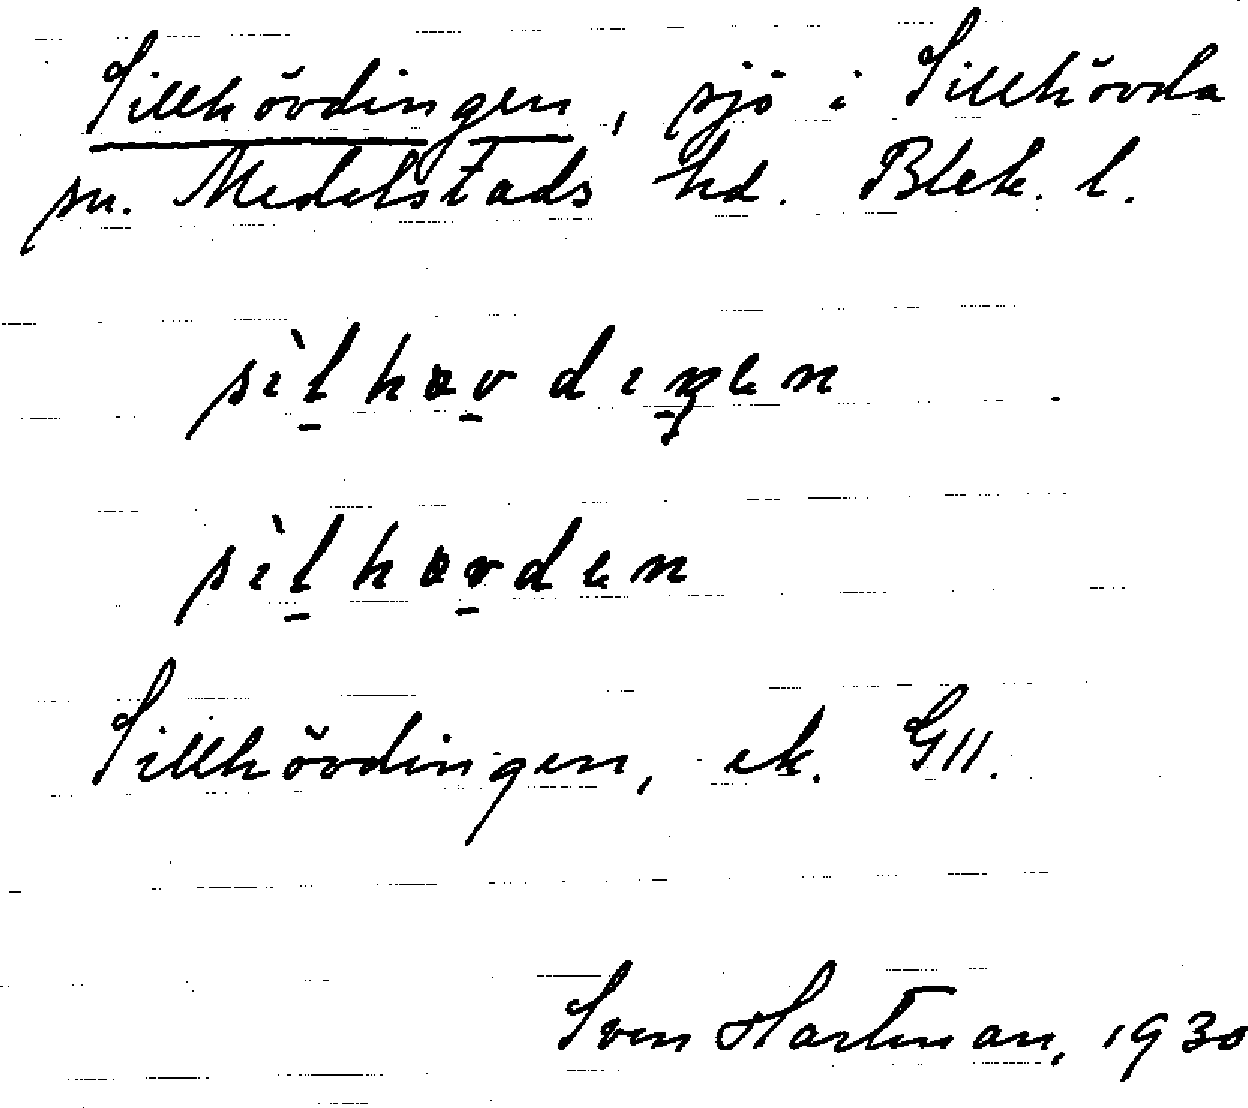 Sillhövdingen, sjö i Sillhövda
sn. Medelstads hd. Blek. l.
sìlhovdiŋen
sìlhovden
Sillhövdingen, ek. GII.
Sven Hartman, 1930